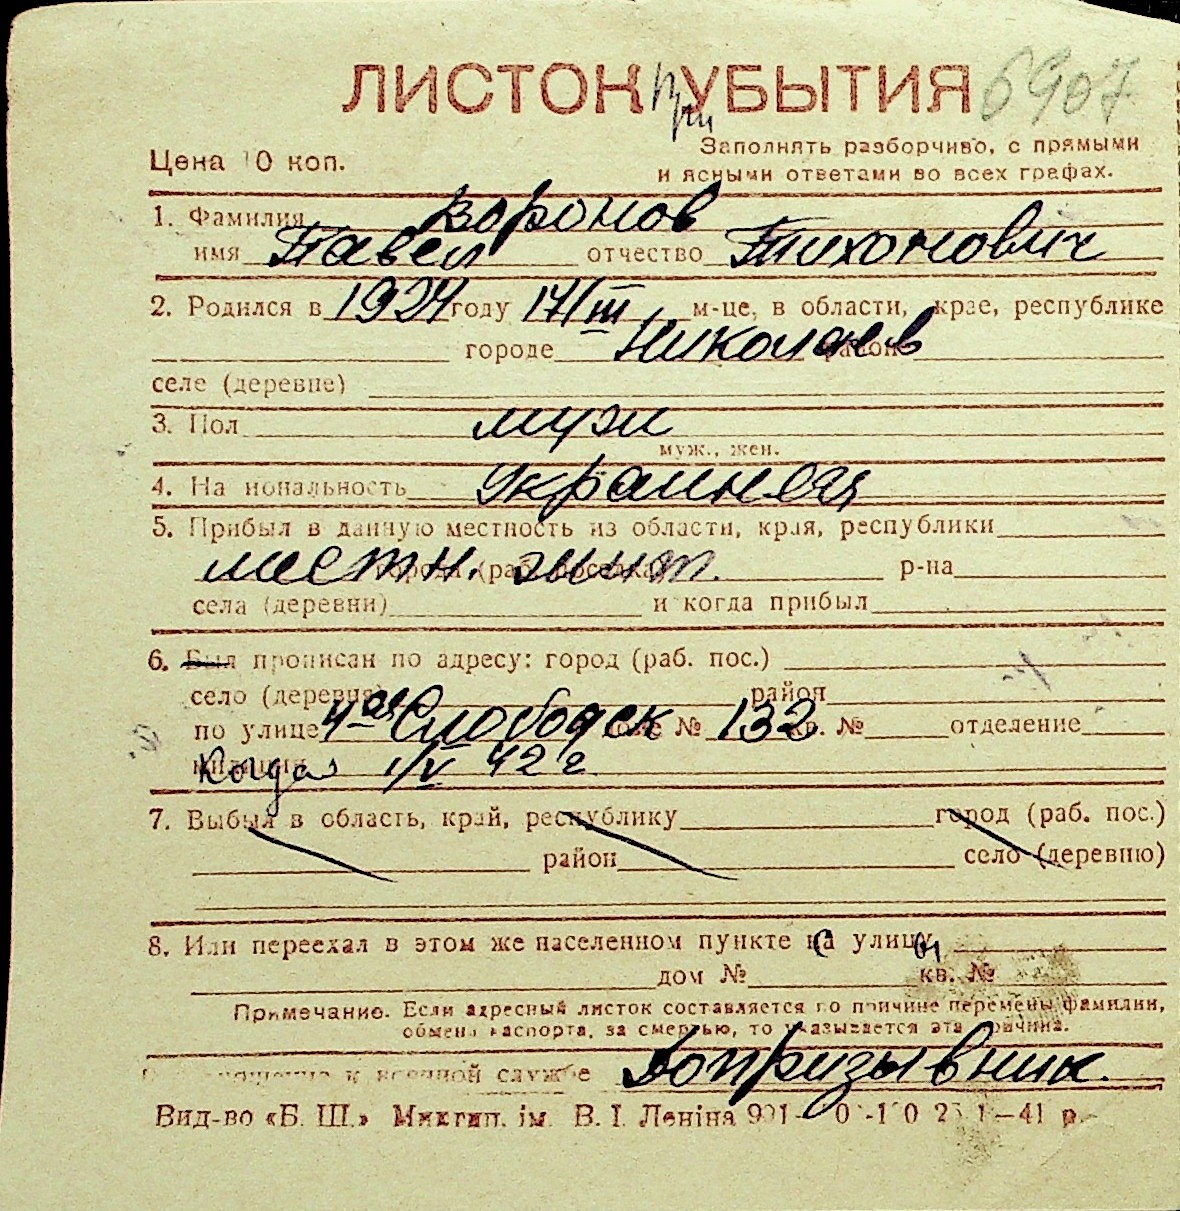 ЛИСТОК при УБЫТИЯ 6907
Цена 10 коп.
Заполнять разборчиво, с прямыми
и ясными ответами во всех графах.
1. Фамилия Воронов
имя Павел отчество Тихонович
2. Родился в 1924 году 17/III м-це, в области, крае, республике
городе Николаев районе
селе (деревне)
3. Пол муж
муж., жен.
4. Национальность украинец
5. Прибыл в данную местность из области, края, республики
местн. жит. города (раб. поселка) р-на
села (деревни) и когда прибыл
6. Был прописан по адресу: город (раб. пос.)
село (деревня) район
по улице 4ая Слободск доме № 132 кв. № отделение
милиции Когда 1/V 42 г.
7. Выбыл в область, край, республику город (раб. пос.)
район село (деревню)
8. Или переехал в этом же населенном пункте с улицы
дом № кв. №
Примечание. Если адресный листок составляется по причине перемены фамилии,
обмена паспорта, за смертью, то указывается эта причина.
к военной службе Допризывник.
Вид-во «Б. Ш.» Миктип. ім. В. І. Леніна